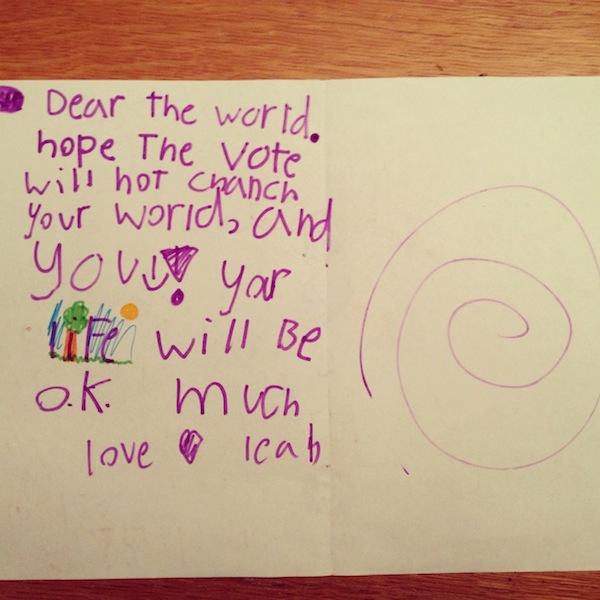 Dear the world.
hope The vote
will not chanch
your world, and
you! yar
life will Be
o.k. much
love leah